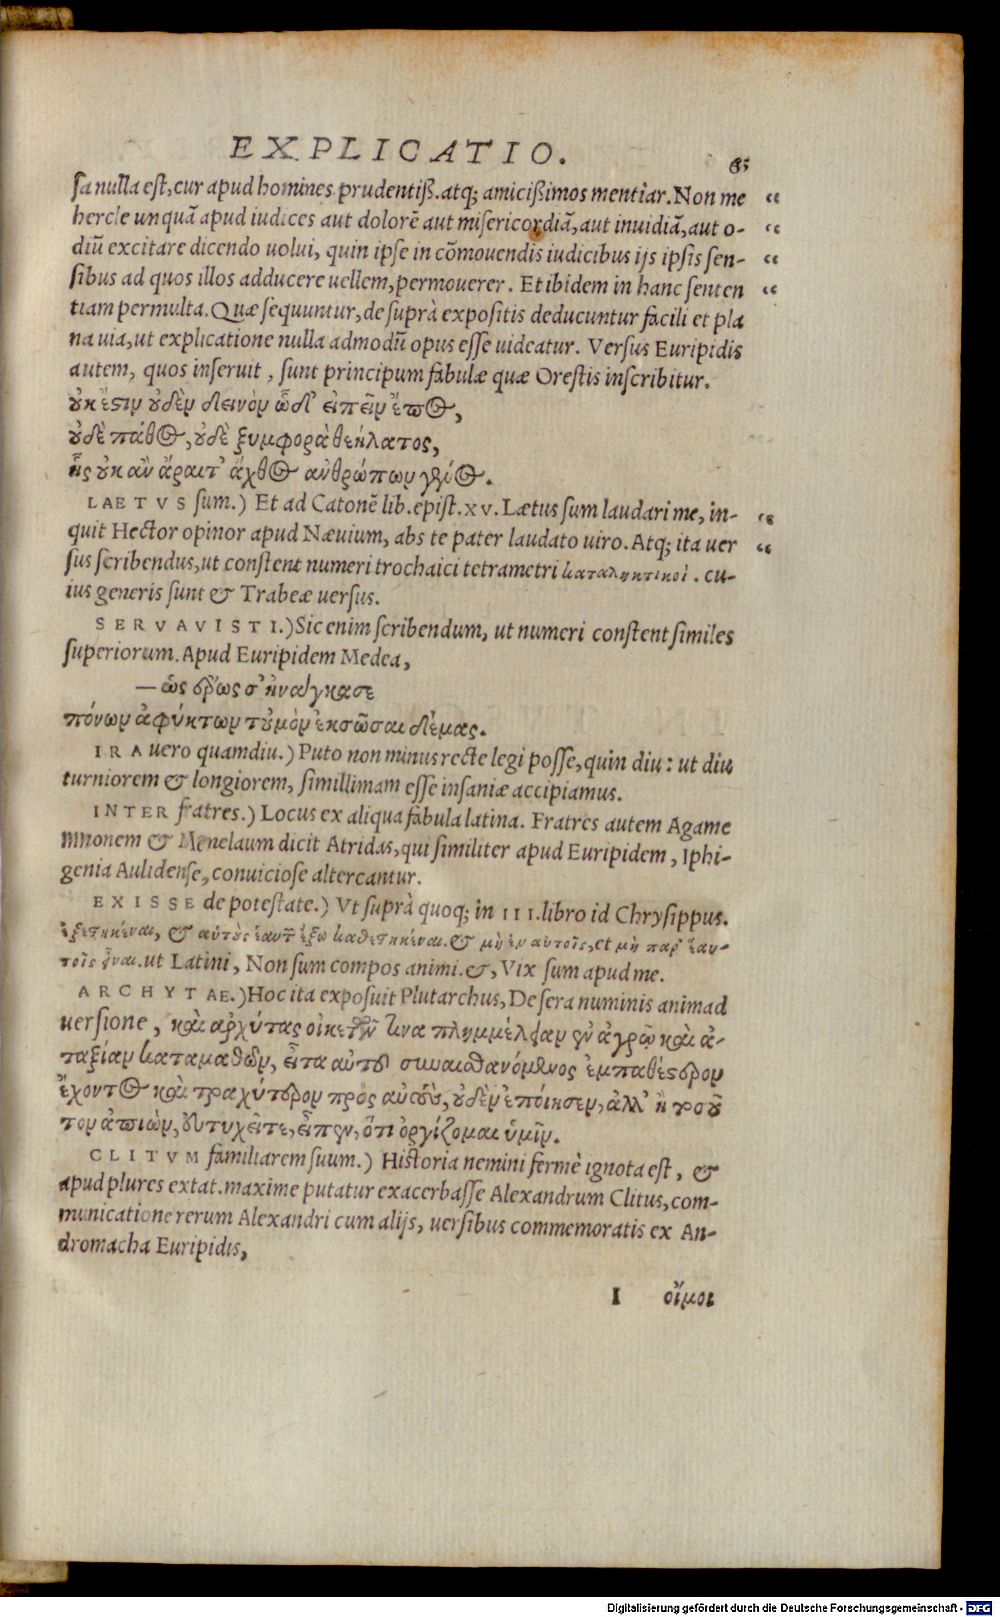 EXPLICATIO. 65
sa nulla est, cur apud homines prudentiß. atq; amicißimos mentiar. Non me “
hercle unquā apud iudices aut dolorē aut misericordiā, aut inuidiā, aut o- “
diū excitare dicendo uolui, quin ipse in cōmouendis iudicibus ijs ipsis sen- “
sibus ad quos illos adducere uellem, permouerer. Et ibidem in hanc senten “
tiam permulta. Quæ sequuntur, de suprà expositis deducuntur facili et pla
na uia, ut explicatione nulla admodū opus esse uideatur. Versus Euripidis
autem, quos inseruit, sunt principum fabulæ quæ Orestis inscribitur.
οὐκ ἔστιν οὐδὲν δεινὸν ὧδ' εἰπεῖν ἔπος,
οὐδὲ πάθος, οὐδὲ ξυμφορὰ θεήλατος,
ἧς οὐκ ἂν ἄραιτ' ἄχθος ἀνθρώπων γένος.
LAETVS sum.) Et ad Catonē lib. epist. XV. Lætus sum laudari me, in- “
quit Hector opinor apud Næuium, abs te pater laudato uiro. Atq; ita uer “
sus scribendus, ut constent numeri trochaici tetrametri καταληκτικοί. cu-
ius generis sunt & Trabeæ uersus.
SERVAVISTI.) Sic enim scribendum, ut numeri constent similes
superiorum. Apud Euripidem Medea,
— ὡς ἔρως σ' ἠνάγκασε
πόνων ἀφύκτων τοὐμὸν ἐκσῶσαι δέμας.
IRA uero quamdiu.) Puto non minus recte legi posse, quin diu: ut diu
turniorem & longiorem, simillimam esse insaniæ accipiamus.
INTER fratres.) Locus ex aliqua fabula latina. Fratres autem Agame
mnonem & Menelaum dicit Atridas, qui similiter apud Euripidem, Iphi-
genia Aulidense, conuiciose altercantur.
EXISSE de potestate.) Vt suprà quoq; in III. libro id Chrysippus.
ἐξεστηκέναι, & αὐτὸς ἑαυτοῦ ἔξω καθεστηκέναι. & μὴ ἐν αὑτοῖς, et μὴ παρ' ἑαυ-
τοῖς εἶναι. ut Latini, Non sum compos animi. &, Vix sum apud me.
ARCHYTAE.) Hoc ita exposuit Plutarchus, De sera numinis animad
uersione, καὶ ἀρχύτας οἰκετῶν τινα πλημμέλειαν ἐν ἀγρῷ καὶ ἀ-
ταξίαν καταμαθὼν, εἶτα αὑτοῦ συναισθανόμενος ἐμπαθέστερον
ἔχοντος καὶ τραχύτερον πρὸς αὐτοὺς, οὐδὲν ἐποίησεν, ἀλλ' ἢ τοσοῦ
τον ἀπιὼν, εὐτυχεῖτε, εἶπεν, ὅτι ὀργίζομαι ὑμῖν.
CLITVM familiarem suum.) Historia nemini fermè ignota est, &
apud plures extat. maxime putatur exacerbasse Alexandrum Clitus, com-
municatione rerum Alexandri cum alijs, uersibus commemoratis ex An-
dromacha Euripidis,
I οἴμοι
Digitalisierung gefördert durch die Deutsche Forschungsgemeinschaft - DFG